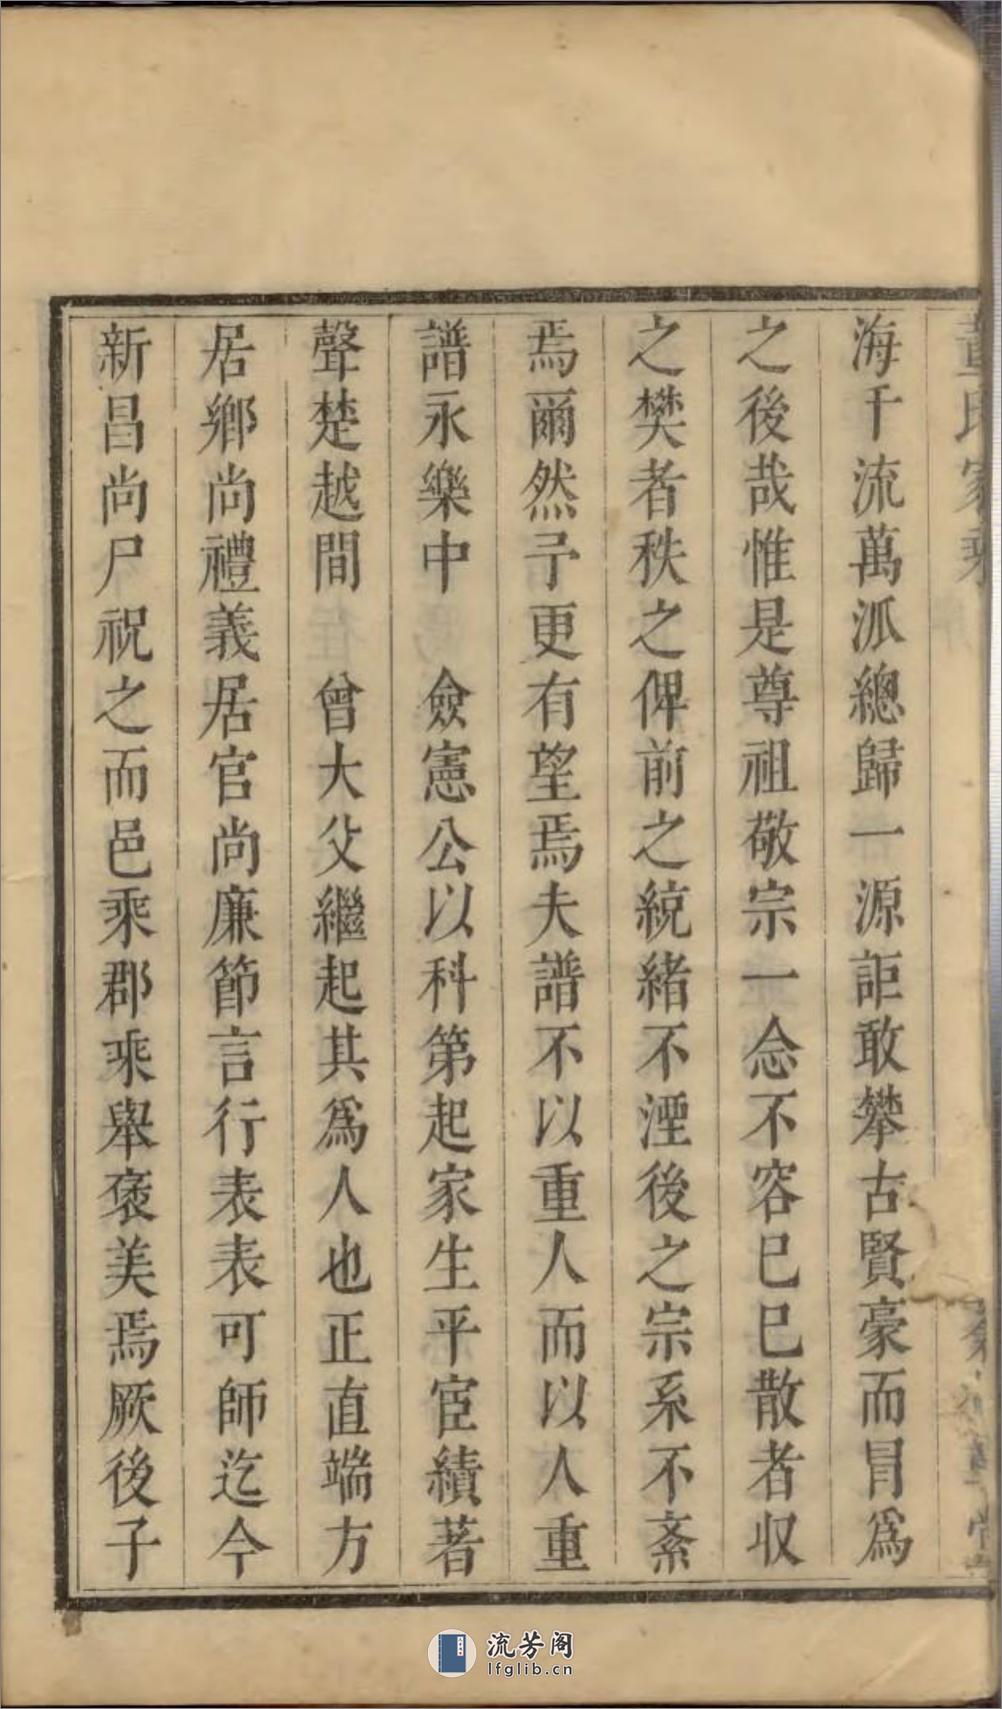 海千流萬派總歸一源詎敢攀古賢豪而冒爲
之後哉惟是尊祖敬宗一念不容已已散者収
之樊者秩之俾前之統緒不湮後之宗系不紊
焉爾然予更有望焉夫譜不以重人而以人重
譜永樂中　僉憲公以科第起家生平宦績著
聲楚越間　曾大父繼起其爲人也正直端方
居鄉尚禮義居官尚廉節言行表表可師迄今
新昌尚尸祝之而邑乘郡乘舉褒美焉厥後子
流芳阁
lfglib.cn